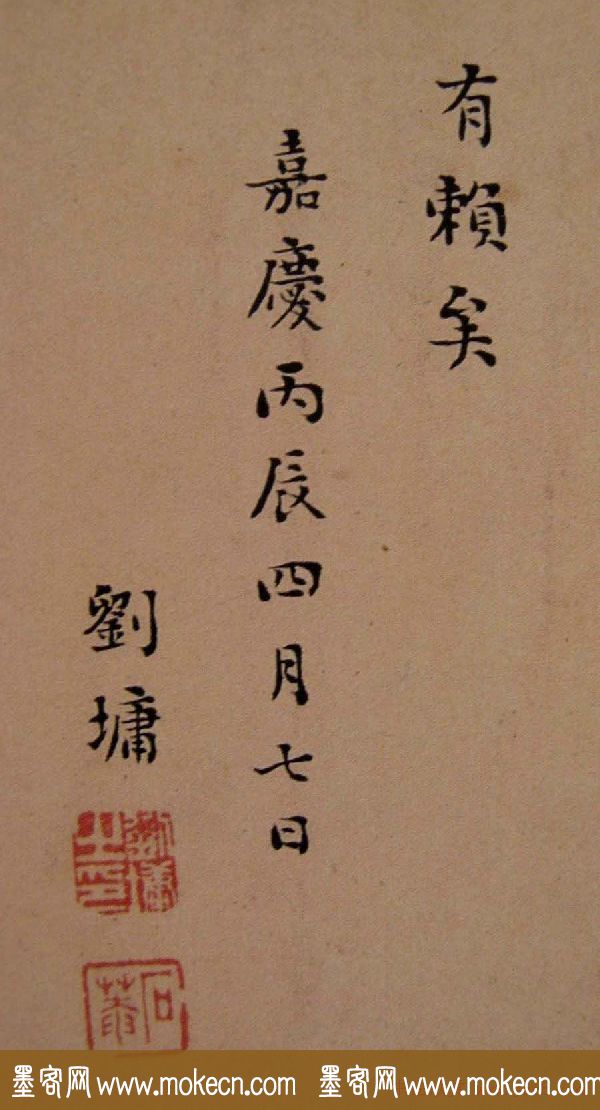 有賴矣
嘉慶丙辰四月七日
劉墉
劉墉之印
石菴
墨客网 www.mokecn.com 墨客网 www.mokecn.com